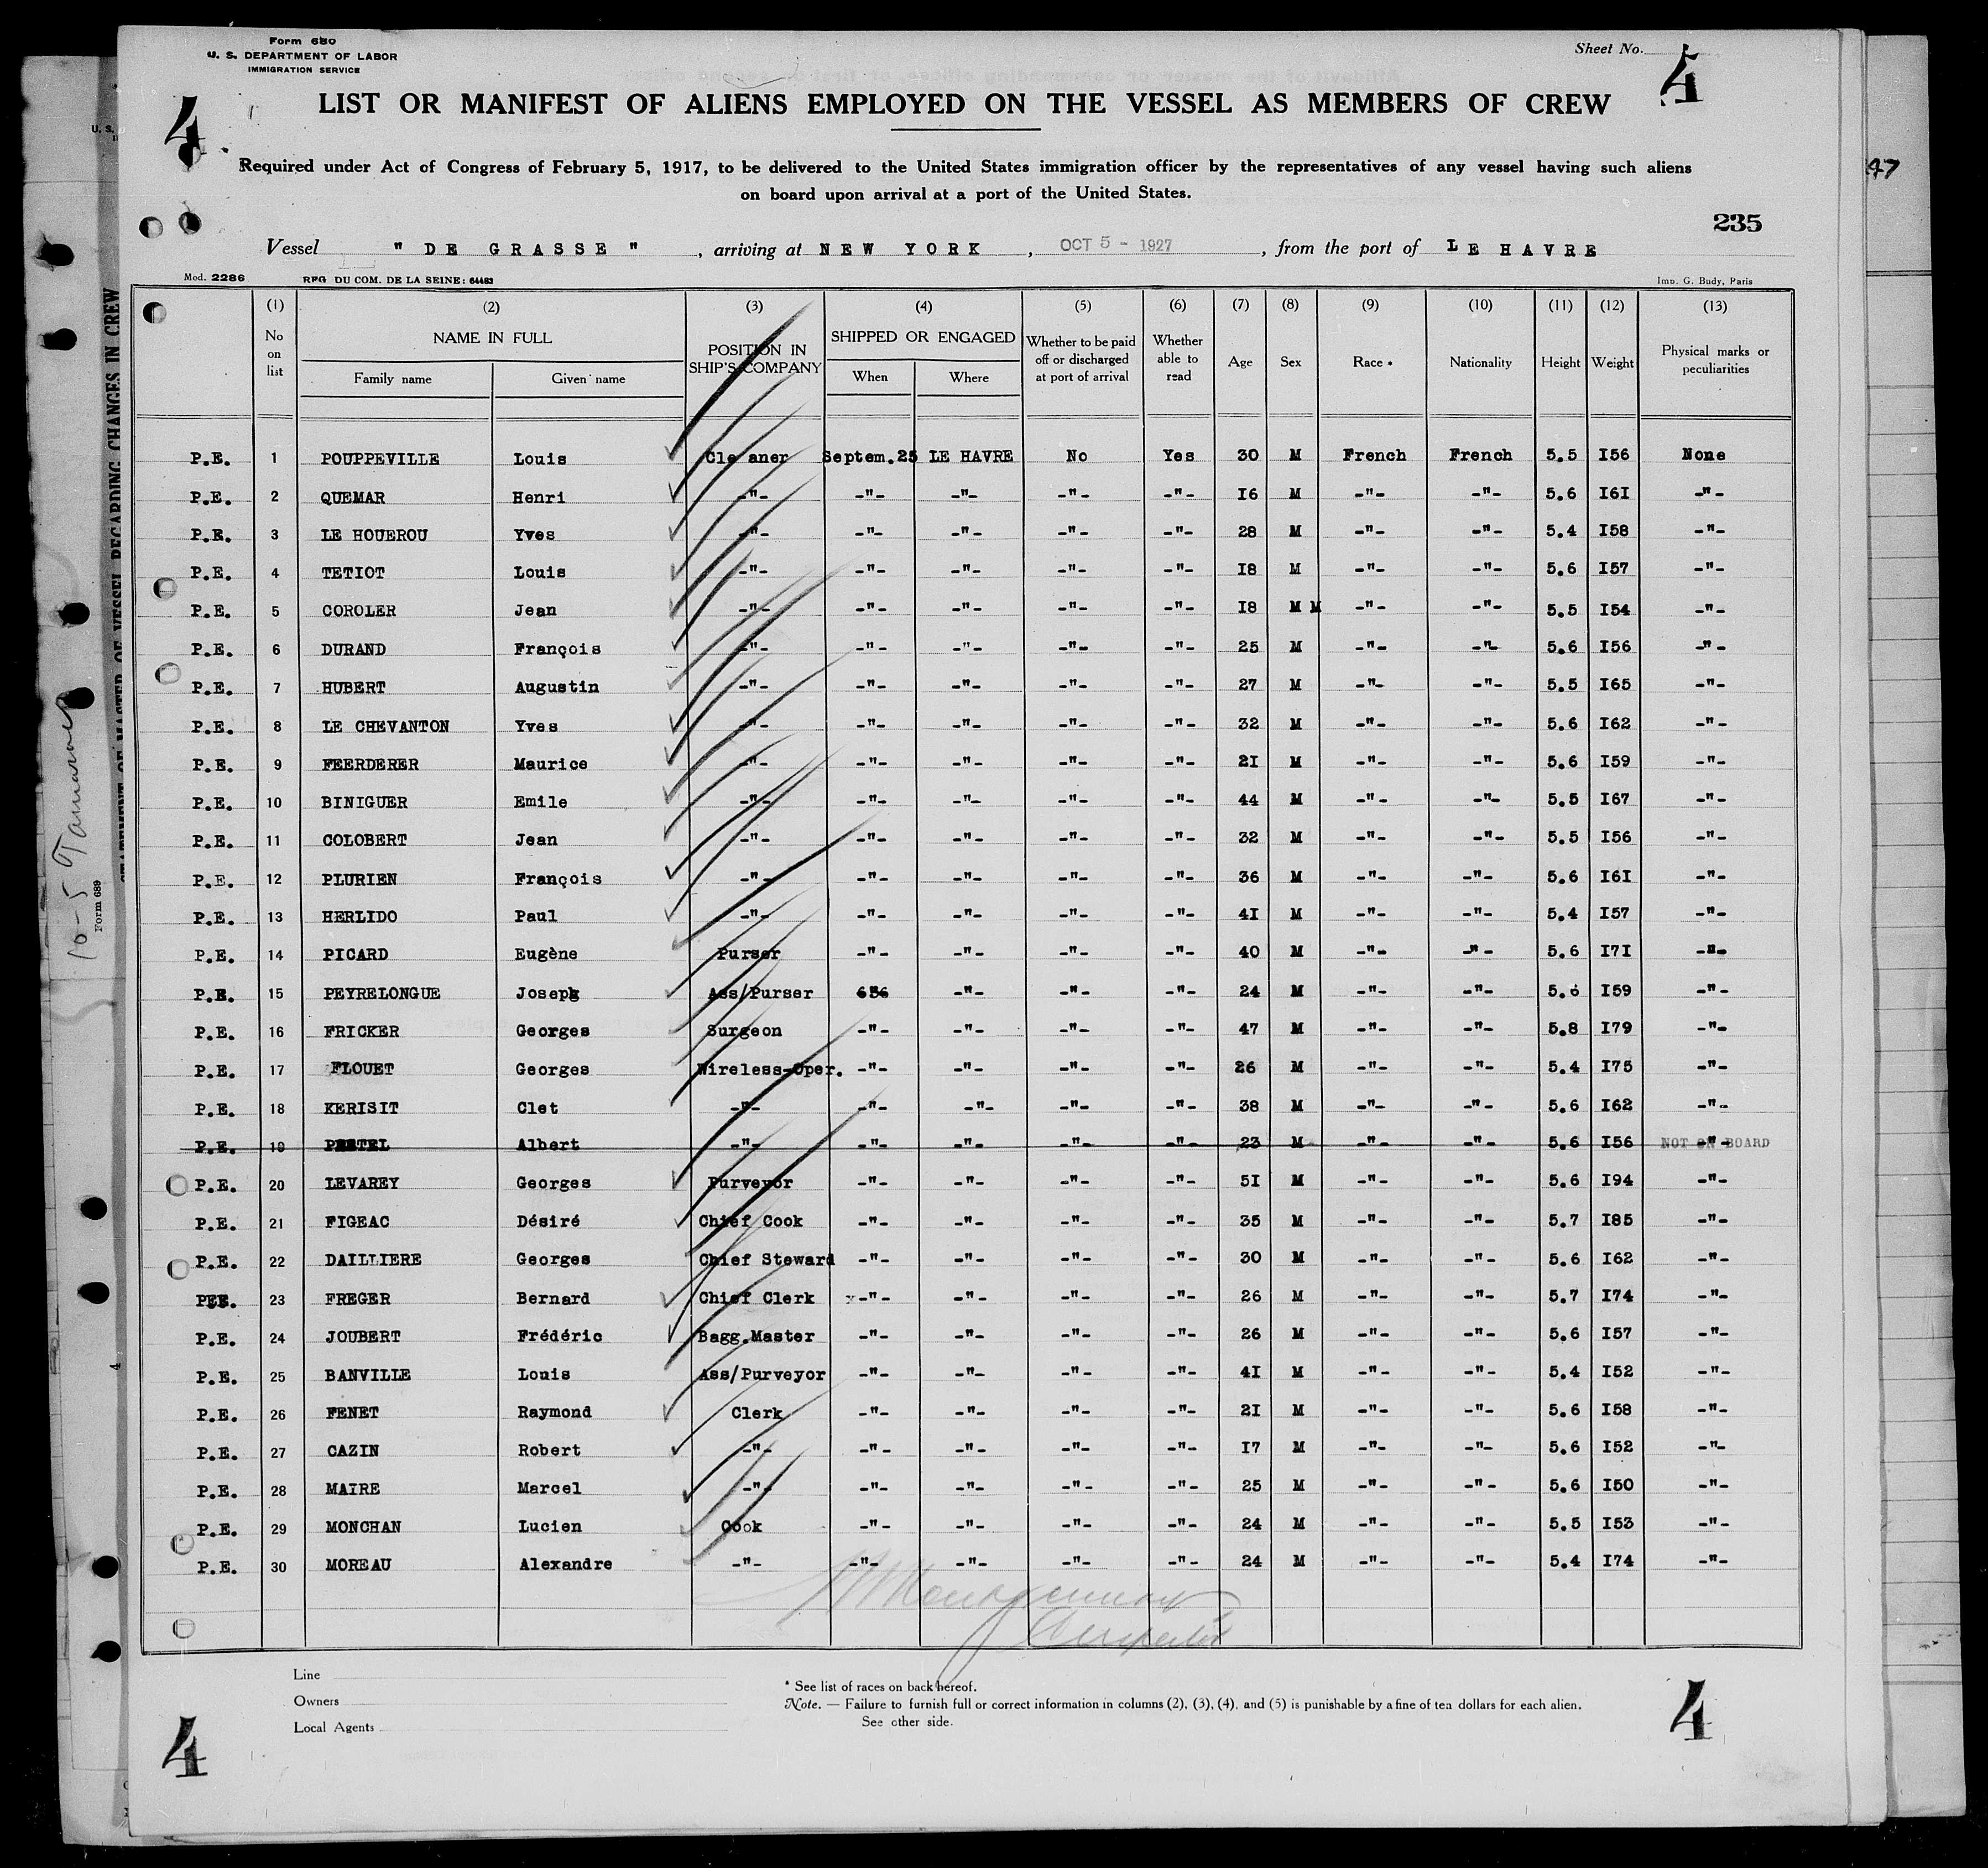 Form 680
U. S. DEPARTMENT OF LABOR
IMMIGRATION SERVICE
Sheet No. 4
4
LIST OR MANIFEST OF ALIENS EMPLOYED ON THE VESSEL AS MEMBERS OF CREW
Required under Act of Congress of February 5, 1917, to be delivered to the United States immigration officer by the representatives of any vessel having such aliens
on board upon arrival at a port of the United States.
47
235
Vessel " DE GRASSE " , arriving at NEW YORK , OCT 5 - 1927 , from the port of LE HAVRE
Mod. 2286 RPG DU COM. DE LA SEINE: 64483 Imp. G. Budy, Paris
(1) (2) (3) (4) (5) (6) (7) (8) (9) (10) (11) (12) (13)
No on list NAME IN FULL Family name Given name POSITION IN SHIP'S COMPANY SHIPPED OR ENGAGED When Where Whether to be paid off or discharged at port of arrival Whether able to read Age Sex Race * Nationality Height Weight Physical marks or peculiarities
P.E. 1 POUPPEVILLE Louis Cle aner Septem.25 LE HAVRE No Yes 30 M French French 5.5 I56 None
P.E. 2 QUEMAR Henri -"- -"- -"- -"- -"- I6 M -"- -"- 5.6 I6I -"-
P.E. 3 LE HOUEROU Yves -"- -"- -"- -"- -"- 28 M -"- -"- 5.4 I58 -"-
P.E. 4 TETIOT Louis -"- -"- -"- -"- -"- I8 M -"- -"- 5.6 I57 -"-
P.E. 5 COROLER Jean -"- -"- -"- -"- -"- I8 M M -"- -"- 5.5 I54 -"-
P.E. 6 DURAND François -"- -"- -"- -"- -"- 25 M -"- -"- 5.6 I56 -"-
P.E. 7 HUBERT Augustin -"- -"- -"- -"- -"- 27 M -"- -"- 5.5 I65 -"-
P.E. 8 LE CHEVANTON Yves -"- -"- -"- -"- -"- 32 M -"- -"- 5.6 I62 -"-
P.E. 9 FEERDERER Maurice -"- -"- -"- -"- -"- 2I M -"- -"- 5.6 I59 -"-
P.E. 10 BINIGUER Emile -"- -"- -"- -"- -"- 44 M -"- -"- 5.5 I67 -"-
P.E. 11 COLOBERT Jean -"- -"- -"- -"- -"- 32 M -"- -"- 5.5 I56 -"-
P.E. 12 PLURIEN François -"- -"- -"- -"- -"- 36 M -"- -"- 5.6 I6I -"-
P.E. 13 HERLIDO Paul -"- -"- -"- -"- -"- 4I M -"- -"- 5.4 I57 -"-
P.E. 14 PICARD Eugène Purser -"- -"- -"- -"- 40 M -"- -"- 5.6 I7I -"-
P.E. 15 PEYRELONGUE Joseph Ass/Purser -"- -"- -"- 24 M -"- -"- 5.6 I59 -"-
P.E. 16 FRICKER Georges Surgeon -"- -"- -"- -"- 47 M -"- -"- 5.8 I79 -"-
P.E. 17 FLOUET Georges Wireless-Oper. -"- -"- -"- -"- 26 M -"- -"- 5.4 I75 -"-
P.E. 18 KERISIT Clet -"- -"- -"- -"- -"- 38 M -"- -"- 5.6 I62 -"-
P.E. 19 PESTEL Albert -"- -"- -"- -"- -"- 23 M -"- -"- 5.6 I56 -"- NOT ON BOARD
P.E. 20 LEVAREY Georges Purveyor -"- -"- -"- -"- 5I M -"- -"- 5.6 I94 -"-
P.E. 21 FIGEAC Désiré Chief Cook -"- -"- -"- -"- 35 M -"- -"- 5.7 I85 -"-
P.E. 22 DAILLIERE Georges Chief Steward -"- -"- -"- -"- 30 M -"- -"- 5.6 I62 -"-
P.E. 23 FREGER Bernard Chief Clerk -"- -"- -"- -"- 26 M -"- -"- 5.7 I74 -"-
P.E. 24 JOUBERT Frédéric Bagg.Master -"- -"- -"- -"- 26 M -"- -"- 5.6 I57 -"-
P.E. 25 BANVILLE Louis Ass/Purveyor -"- -"- -"- -"- 4I M -"- -"- 5.4 I52 -"-
P.E. 26 FENET Raymond Clerk -"- -"- -"- -"- 2I M -"- -"- 5.6 I58 -"-
P.E. 27 CAZIN Robert -"- -"- -"- -"- -"- I7 M -"- -"- 5.6 I52 -"-
P.E. 28 MAIRE Marcel -"- -"- -"- -"- -"- 25 M -"- -"- 5.6 I50 -"-
P.E. 29 MONCHAN Lucien Cook -"- -"- -"- -"- 24 M -"- -"- 5.5 I53 -"-
P.E. 30 MOREAU Alexandre -"- -"- -"- -"- -"- 24 M -"- -"- 5.4 I74 -"-
Line
Owners
Local Agents
* See list of races on back hereof.
Note. — Failure to furnish full or correct information in columns (2), (3), (4), and (5) is punishable by a fine of ten dollars for each alien.
See other side.
4
4
Form 689
STATEMENT OF MASTER OF VESSEL REGARDING CHANGES IN CREW